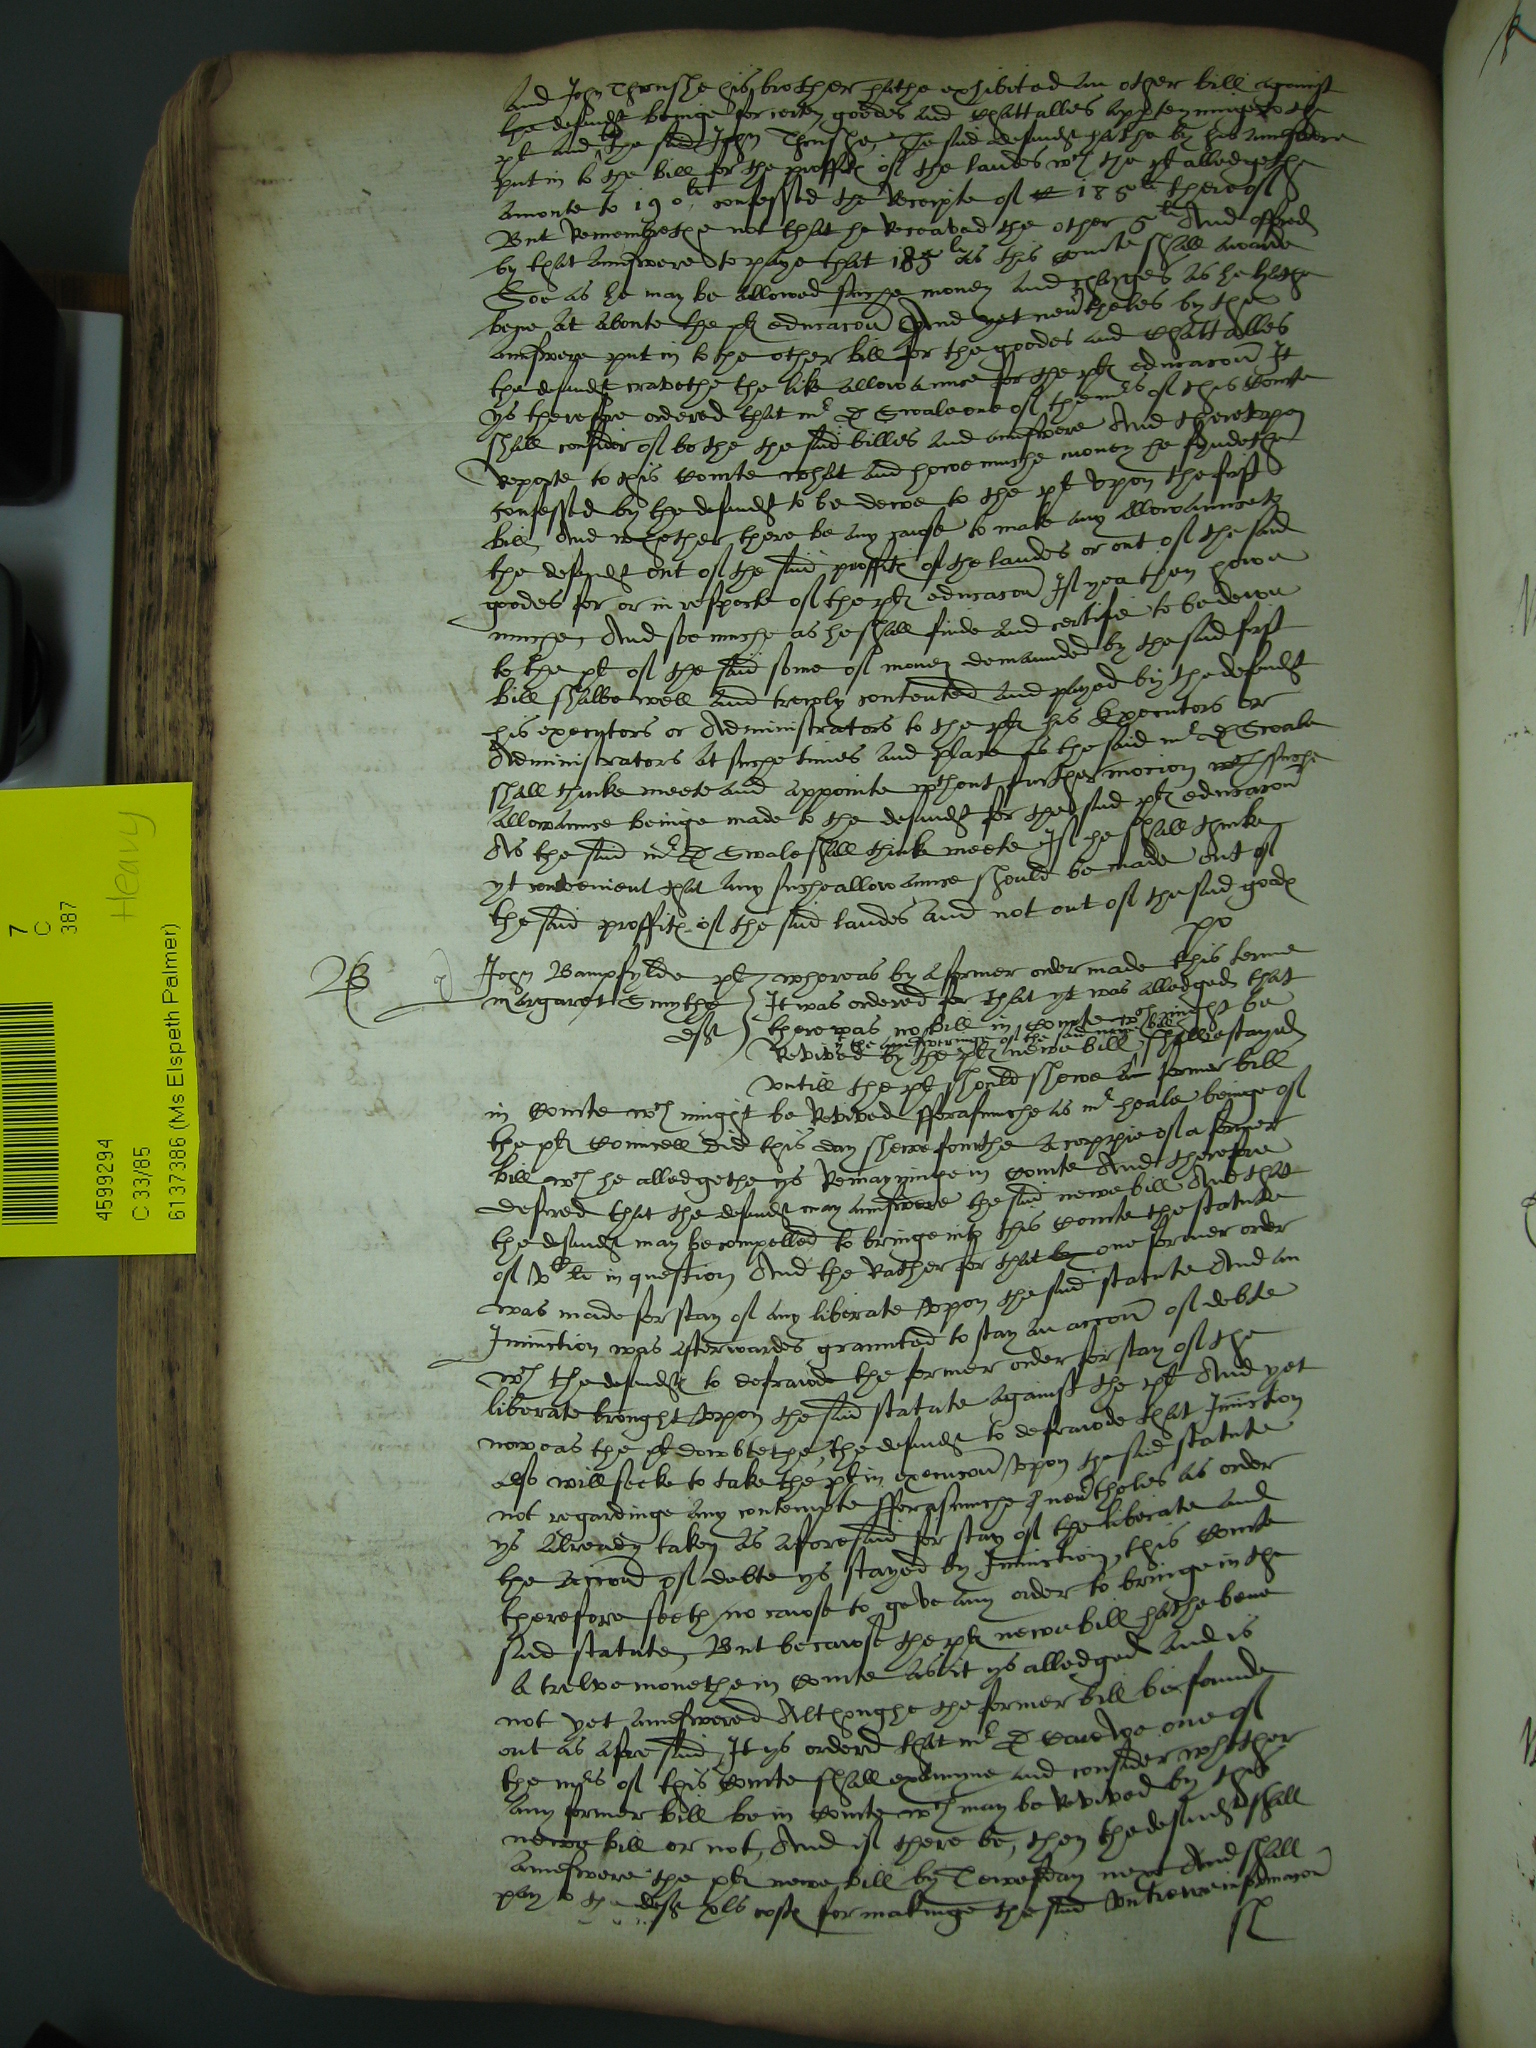 And John Thrushe his brother hathe exhibited an other bill against
the defend<sup>t</sup> beinge for certen goodes and Chattalles appteyninge to the
pl and the said John Thrushe, The said defend<sup>t</sup> hathe by his aunswere
put in to the bill for the proffitts of the landes w<sup>ch</sup> the pl alledgethe
amonte to 190<sup>li</sup> confessed the Receipte of 185<sup>li</sup> thereof
But Remembrethe not that he Receaved the other 5<sup>li</sup> And offred
by that aunswere to paye that 185<sup>li</sup> as this Courte shall awarde
Soe as he may be allowed suche money and charges as he hathe
bene at aboute the pl educacon And yet nev<sup>r</sup>theles by the
aunswere put in to the other bill for the goodes and Chattalles
the defend<sup>t</sup> cravethe the like allowaunce for the pl educacon It
ys therefore ordered that m<sup>r</sup> D Swale one of the m<sup>rs</sup> of this Courte
shall consider of bothe the said billes and aunswere And thereupon
Reporte to this Courte what and howe muche money he fyndethe
confessed by the defend<sup>t</sup> to be dewe to the pl upon the first
bill, And whether there be any cause to make any allowaunce to
the defend<sup>t</sup> out of the said proffitts of the landes or out of the said
goodes for or in respecte of the pl educacon If yea then howe
muche, And soe muche as he shall finde and certifie to be dewe
to the pl of the said some of money demaunded by the said first
bill shalbe well and trewly contented and payed by the defend<sup>t</sup>
his executors or Administrators to the pl his Executors or
Administrators at suche times and place as the said m<sup>r</sup> D Swale
shall thinke meete and appointe w<sup>th</sup>out further mocion w<sup>th</sup> suche
allowaunce beinge made to the defend<sup>t</sup> for the said pl educacon
As the said m<sup>r</sup> D Swale shall thinke meete If he shall thinke
yt convenient that any suche allowaunce should be made out of
the said proffitts of the said landes and not out of the said goods
po
B John Bampfylde pl Whereas by a former order made this terme
Margaret Smythe It was ordered for that yt was alledged that
def there was no bill in Courte w<sup>ch</sup> might be
the aunsweringe of the said newe bill
Revived by the pl newe bill shalbe stayed
untill the pl should shewe a former bill
in Courte w<sup>ch</sup> might be Revived fforasmuche as m<sup>r</sup> heale beinge of
the pl Councell did this day shewe fourthe a coppie of a former
bill w<sup>ch</sup> he alledgethe ys Remayninge in Courte And therefore
desired that the defend<sup>t</sup> may aunswere the said newe bill And that
the defend<sup>t</sup> may be compelled to bringe into this Courte the statute
of in question And the Rather for that by one former order
was made for stay of any liberate upon the said statute And an
Iniunction was afterwardes graunted to stay an accon of debte
w<sup>ch</sup> the defend<sup>t</sup> to defrawde the former order for stay of the
liberate brought upon the said statute against the pl And yet
nowe as the pl dowbtethe, the defend<sup>t</sup> to defrawde that Iniunction
also will seeke to take the pl in execucon upon the said statute
not regardinge any contempte fforasmuche nev<sup>r</sup>theles as order
ys already taken as aforesaid for stay of the liberate and
the accon of debte ys stayed by Iniunction, this Courte
therefore seeth no cawse to geve any order to bringe in the
said statute, But becawse the pl newe bill hathe bene
a twelve monethe in Courte as it ys alledged And is
not yet aunswered Althoughe the former bill be founde
out as aforesaid, It ys ordered that m<sup>r</sup> D one of
the m<sup>rs</sup> of this Courte shall examyne and consider whether
any former bill be in Courte w<sup>ch</sup> may be Revived by this
newe bill or not, And if there be, then the defend<sup>t</sup> shall
aunswere the pl newe bill by Tewesday next And shall
pay to the def xls costs for makinge the said untrewe informacon
7
C
387
Heavy
4599294
C 33/85
6137386 (Ms Elspeth Palmer)